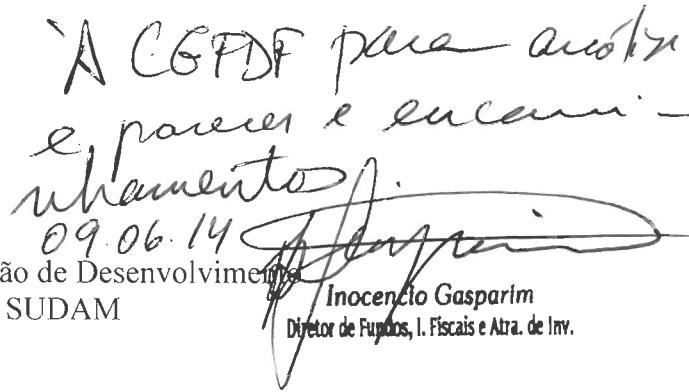 À CGFDF para análise
e parecer e encami-
nhamentos.
09.06.14
ão de Desenvolvimento
SUDAM
Inocencio Gasparim
Diretor de Fundos, I. Fiscais e Atra. de Inv.